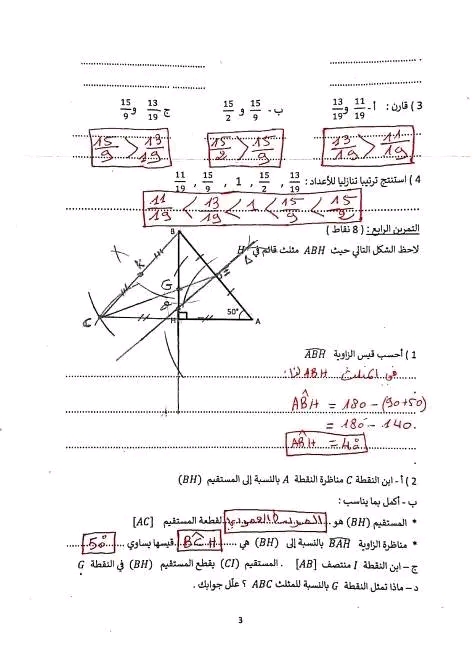 3 ) قارن : أ - 11/19 و 13/19 ب - 15/9 و 15/2 ج 13/19 و 15/9
13/19 > 11/19 15/2 > 15/9 15/9 > 13/19
4 ) استنتج ترتيبا تنازليا للأعداد : 13/19 , 15/2 , 1 , 15/9 , 11/19
11/19 < 13/19 < 1 < 15/9 < 15/2
التمرين الرابع : ( 8 نقاط )
لاحظ الشكل التالي حيث ABH مثلث قائم في H
B
K
G
I
Δ
C
H
50°
A
1 ) أحسب قيس الزاوية ABH
في المثلث ABH لنا :
ABH = 180 - (90+50)
= 180 - 140.
ABH = 40
2 ) أ - ابن النقطة C مناظرة النقطة A بالنسبة إلى المستقيم (BH)
ب - أكمل بما يناسب :
* المستقيم (BH) هو الموسط العمودي لقطعة المستقيم [AC]
* مناظرة الزاوية BAH بالنسبة إلى (BH) هي BCH قيسها يساوي 50°
ج - ابن النقطة I منتصف [AB] . المستقيم (CI) يقطع المستقيم (BH) في النقطة G
د - ماذا تمثل النقطة G بالنسبة للمثلث ABC ؟ علّل جوابك .
3